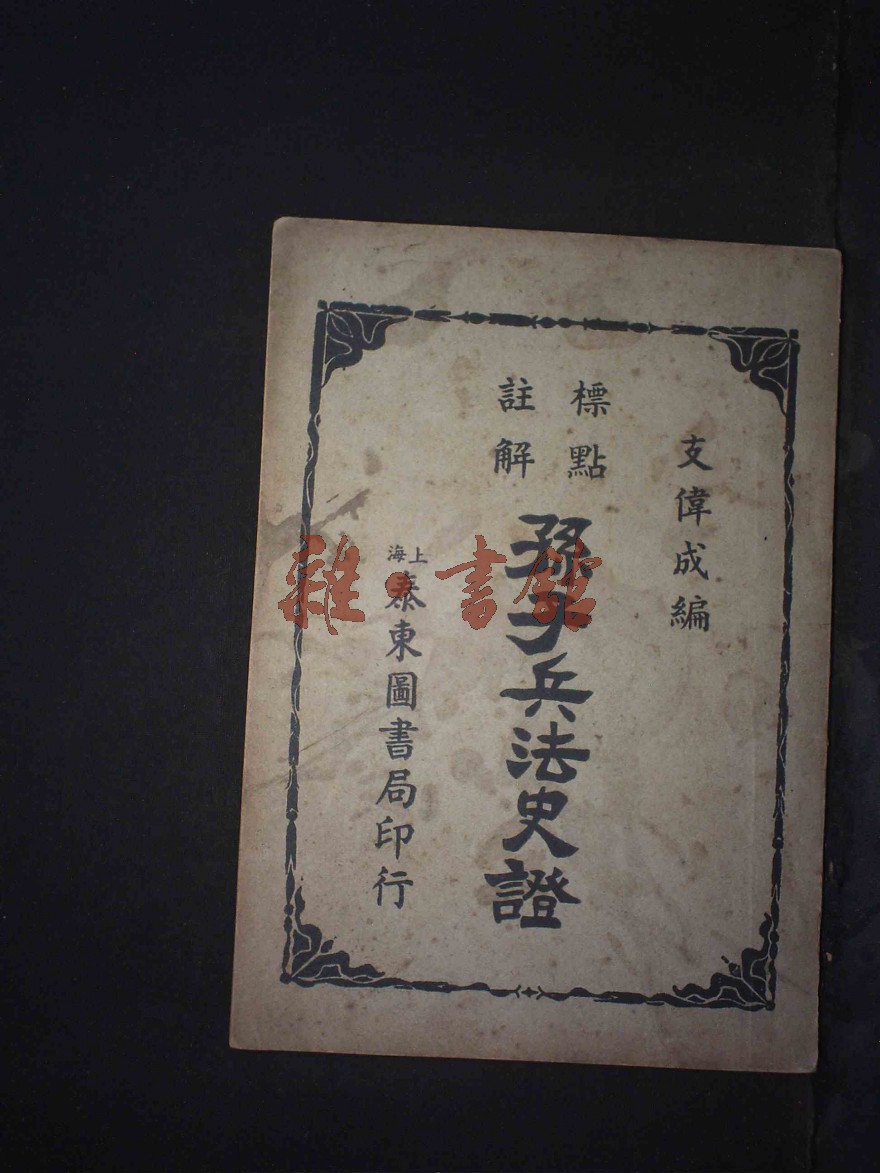 支偉成編
標點
註解
孫子兵法史證
上海
泰東圖書局印行
雜·書館